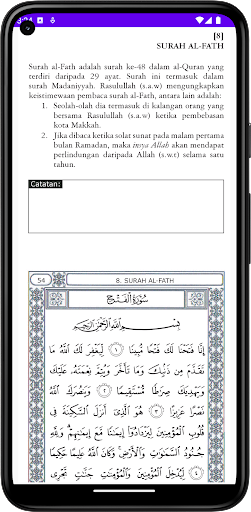 [8]
SURAH AL-FATH
Surah al-Fath adalah surah ke-48 dalam al-Quran yang
terdiri daripada 29 ayat. Surah ini termasuk dalam
surah Madaniyyah. Rasulullah (s.a.w) mengungkapkan
keistimewaan pembaca surah al-Fath, antara lain adalah:
1. Seolah-olah dia termasuk di kalangan orang yang
bersama Rasulullah (s.a.w) ketika pembebasan
kota Makkah.
2. Jika dibaca ketika solat sunat pada malam pertama
bulan Ramadan, maka insya Allah akan mendapat
perlindungan daripada Allah (s.w.t) selama satu
tahun.
Catatan:
54 8. SURAH AL-FATH
سُورَةُ الفَتْحِ
بِسْمِ اللَّهِ الرَّحْمَنِ الرَّحِيمِ
إِنَّا فَتَحْنَا لَكَ فَتْحًا مُّبِينًا ۝١ لِّيَغْفِرَ لَكَ اللَّهُ مَا
تَقَدَّمَ مِن ذَنبِكَ وَمَا تَأَخَّرَ وَيُتِمَّ نِعْمَتَهُ عَلَيْكَ
وَيَهْدِيَكَ صِرَاطًا مُّسْتَقِيمًا ۝٢ وَيَنصُرَكَ اللَّهُ
نَصْرًا عَزِيزًا ۝٣ هُوَ الَّذِي أَنزَلَ السَّكِينَةَ فِي
قُلُوبِ الْمُؤْمِنِينَ لِيَزْدَادُوا إِيمَانًا مَّعَ إِيمَانِهِمْ وَلِلَّهِ
جُنُودُ السَّمَاوَاتِ وَالْأَرْضِ وَكَانَ اللَّهُ عَلِيمًا حَكِيمًا
۝٤ لِّيُدْخِلَ الْمُؤْمِنِينَ وَالْمُؤْمِنَاتِ جَنَّاتٍ تَجْرِي